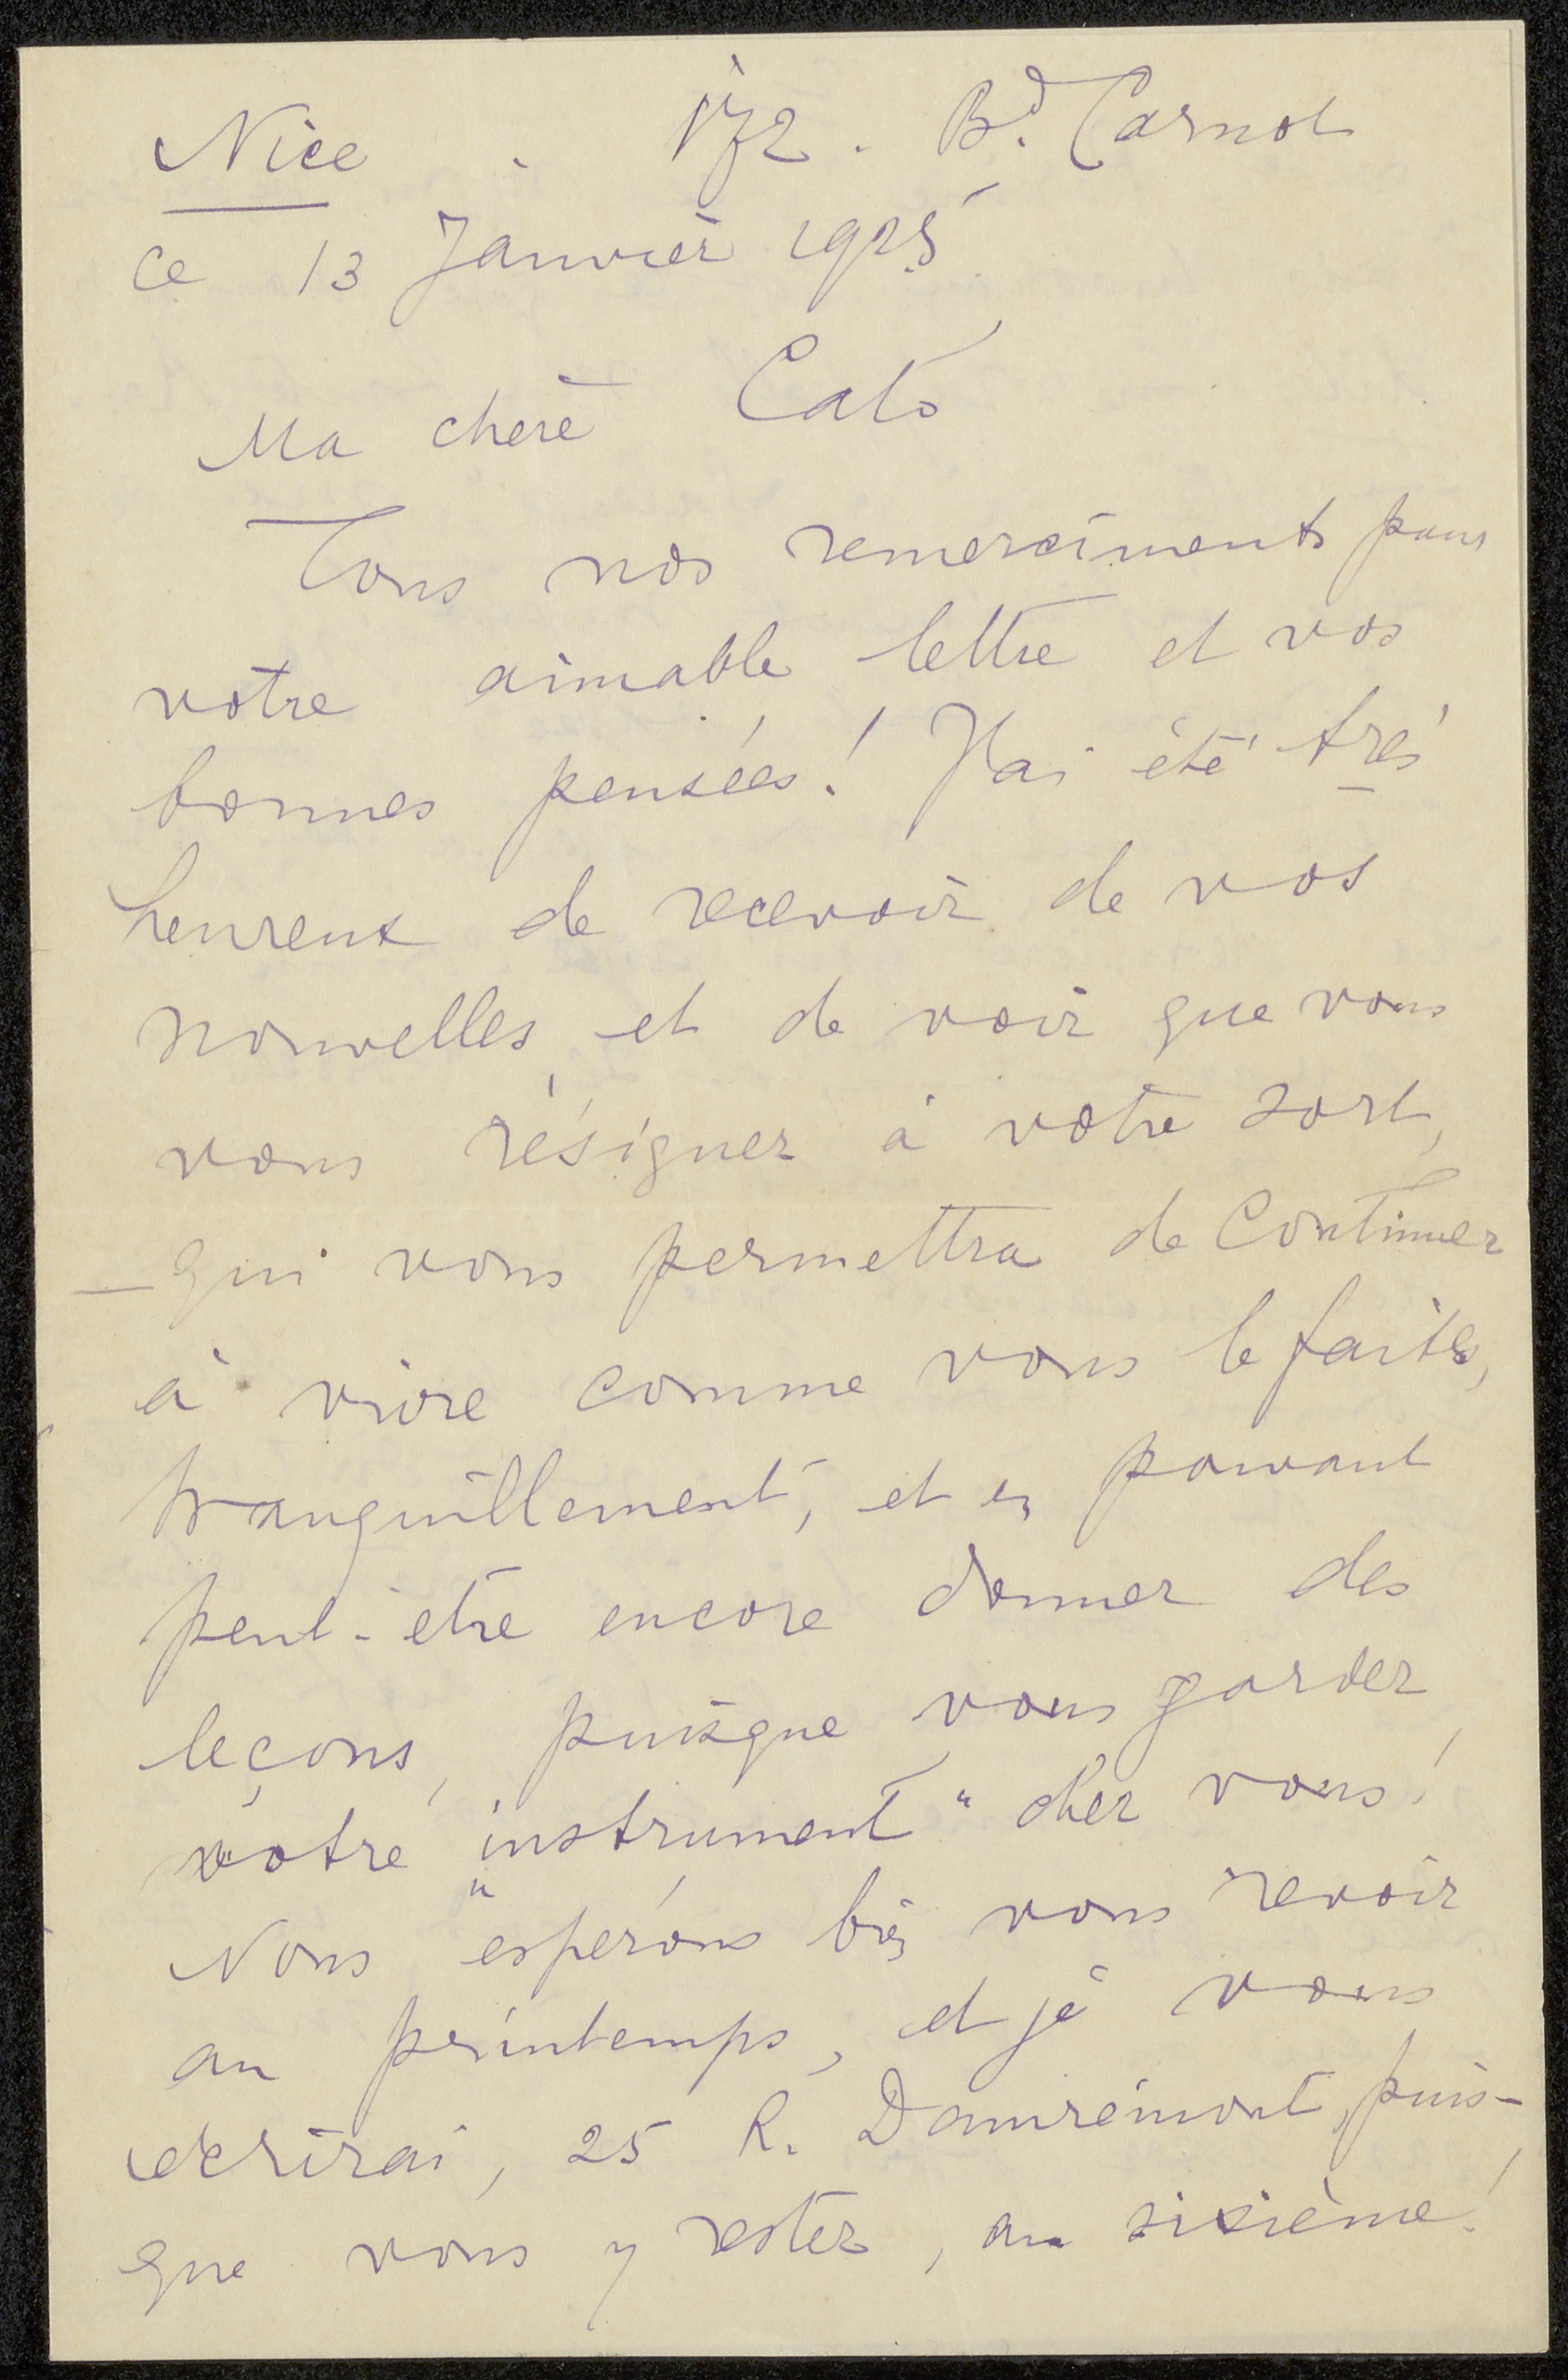 Nice . 172 . Bd. Carnot
ce 13 Janvier 1925
Ma chère Cato
Tous nos remerciments pour
votre aimable lettre et vos
bonnes pensées! J'ai été très
heureux de recevoir de vos
nouvelles, et de voir que vous
vous résignez à votre sort,
– qui vous permettra de Continuer
à vivre comme vous le faites,
tranquillement, et en pouvant
peut-etre encore donner des
leçons, puisque vous gardez
votre „instrument" chez vous!
Nous espérons bien vous revoir
au printemps, et je vous
ecrirai, 25 R. Damrémont, puis-
que vous y restez, au sixième!